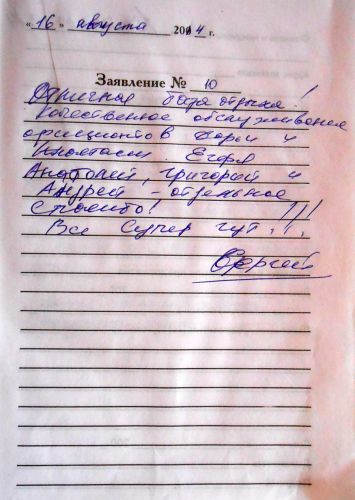 "16" августа 2014 г.
Заявление № 10
Отличная база отдыха!
Качественное обслуживание
официантов Дарьи и
Анастасии.
Анатолий, Григорий и
Андрей - отдельное
спасибо! !!!
Все Супер гут!!!
Сергей